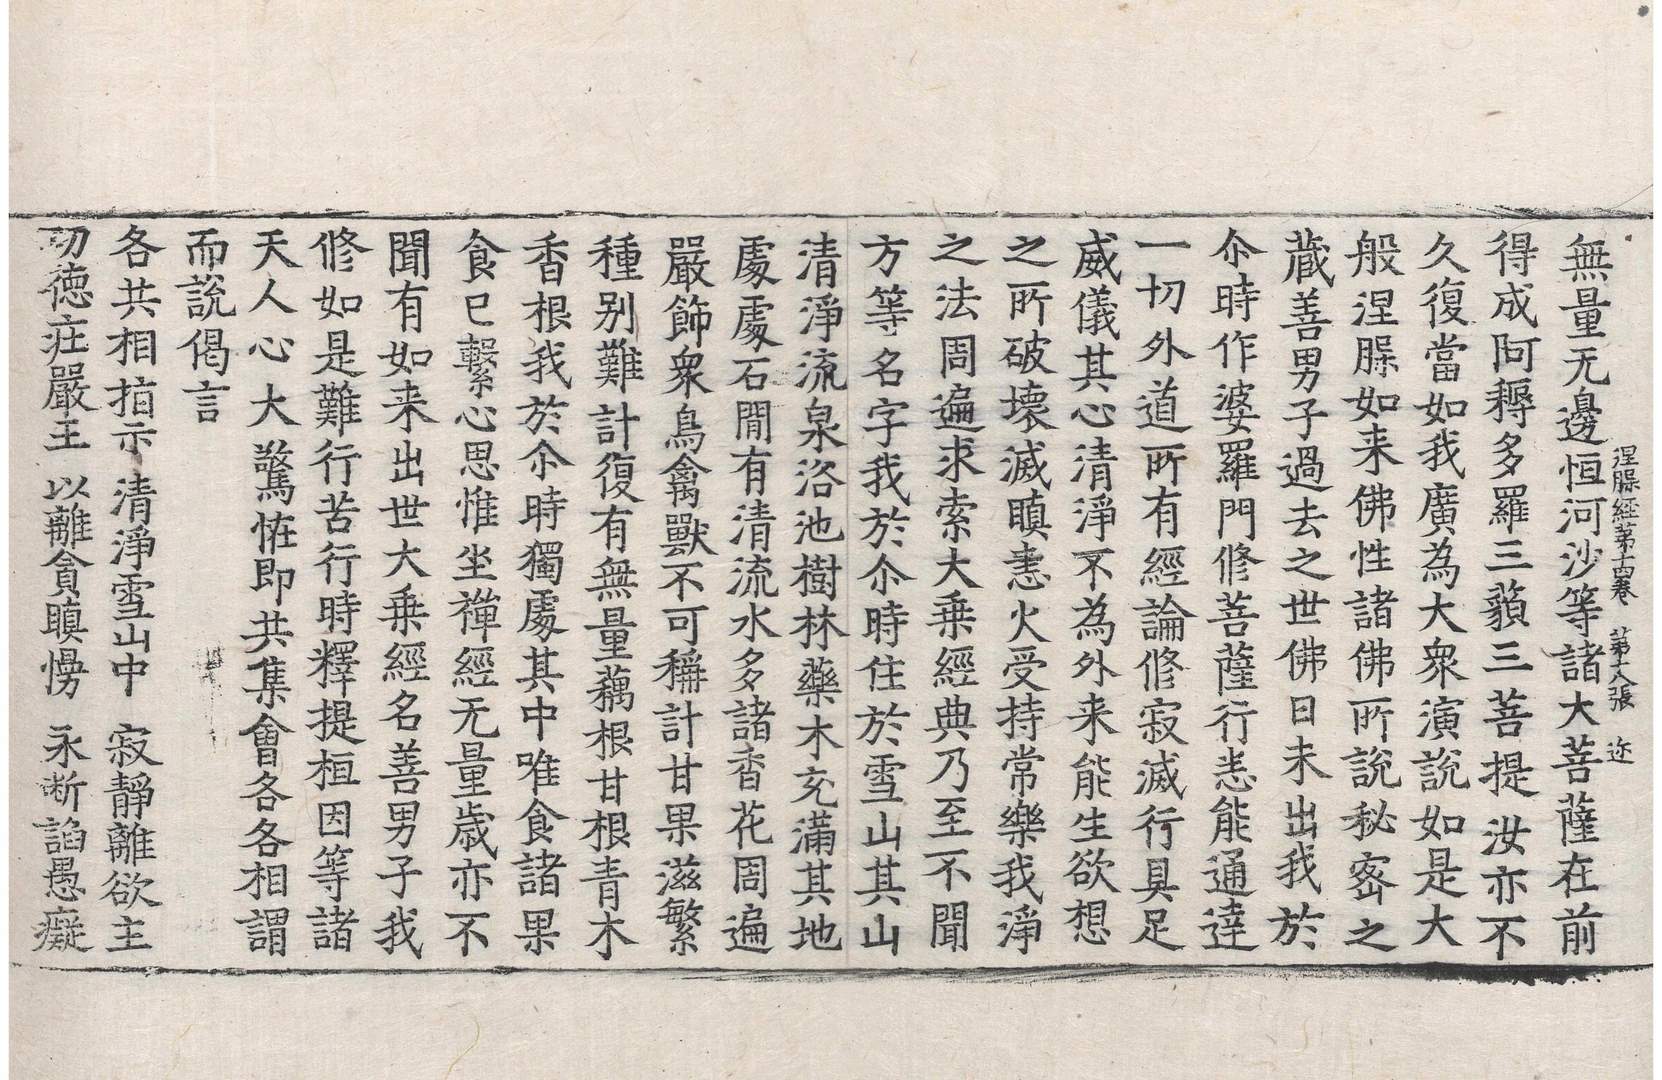 涅槃經第十四卷　第十八張　迩
無量无邊恒河沙等諸大菩薩在前
得成阿耨多羅三藐三菩提汝亦不
久復當如我廣為大衆演說如是大
般涅槃如来佛性諸佛所說秘密之
藏善男子過去之世佛日未出我於
尒時作婆羅門修菩薩行悉能通達
一切外道所有經論修寂滅行具足
威儀其心清淨不為外来能生欲想
之所破壞滅瞋恚火受持常樂我淨
之法周遍求索大乘經典乃至不聞
方等名字我於尒時住於雪山其山
清淨流泉浴池樹林藥木充滿其地
處處石間有清流水多諸香花周遍
嚴飾衆鳥禽獸不可稱計甘果滋繁
種别難計復有無量藕根甘根青木
香根我於尒時獨處其中唯食諸果
食已繫心思惟坐禪經无量歲亦不
聞有如来出世大乘經名善男子我
修如是難行苦行時釋提桓因等諸
天人心大驚恠即共集會各各相謂
而說偈言
各共相指示　清淨雪山中　寂靜離欲主
功德莊嚴王　以離貪瞋慢　永断諂愚癡